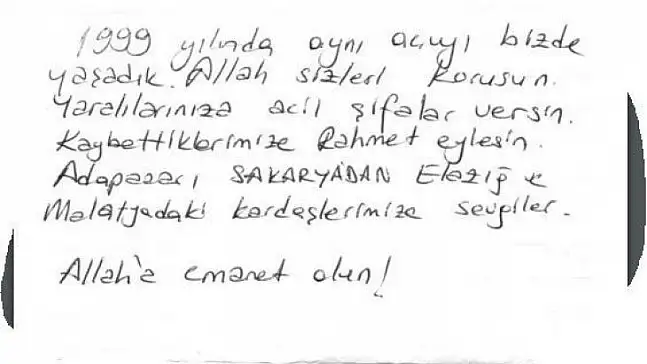 1999 yılında aynı acıyı bizde
yaşadık. Allah sizleri korusun.
Yaralılarınıza acil şifalar versin.
Kaybettiklerimize Rahmet eylesin.
Adapazarı SAKARYA'DAN Elazığ ve
Malatyadaki kardeşlerimize sevgiler.
Allah'a emanet olun!